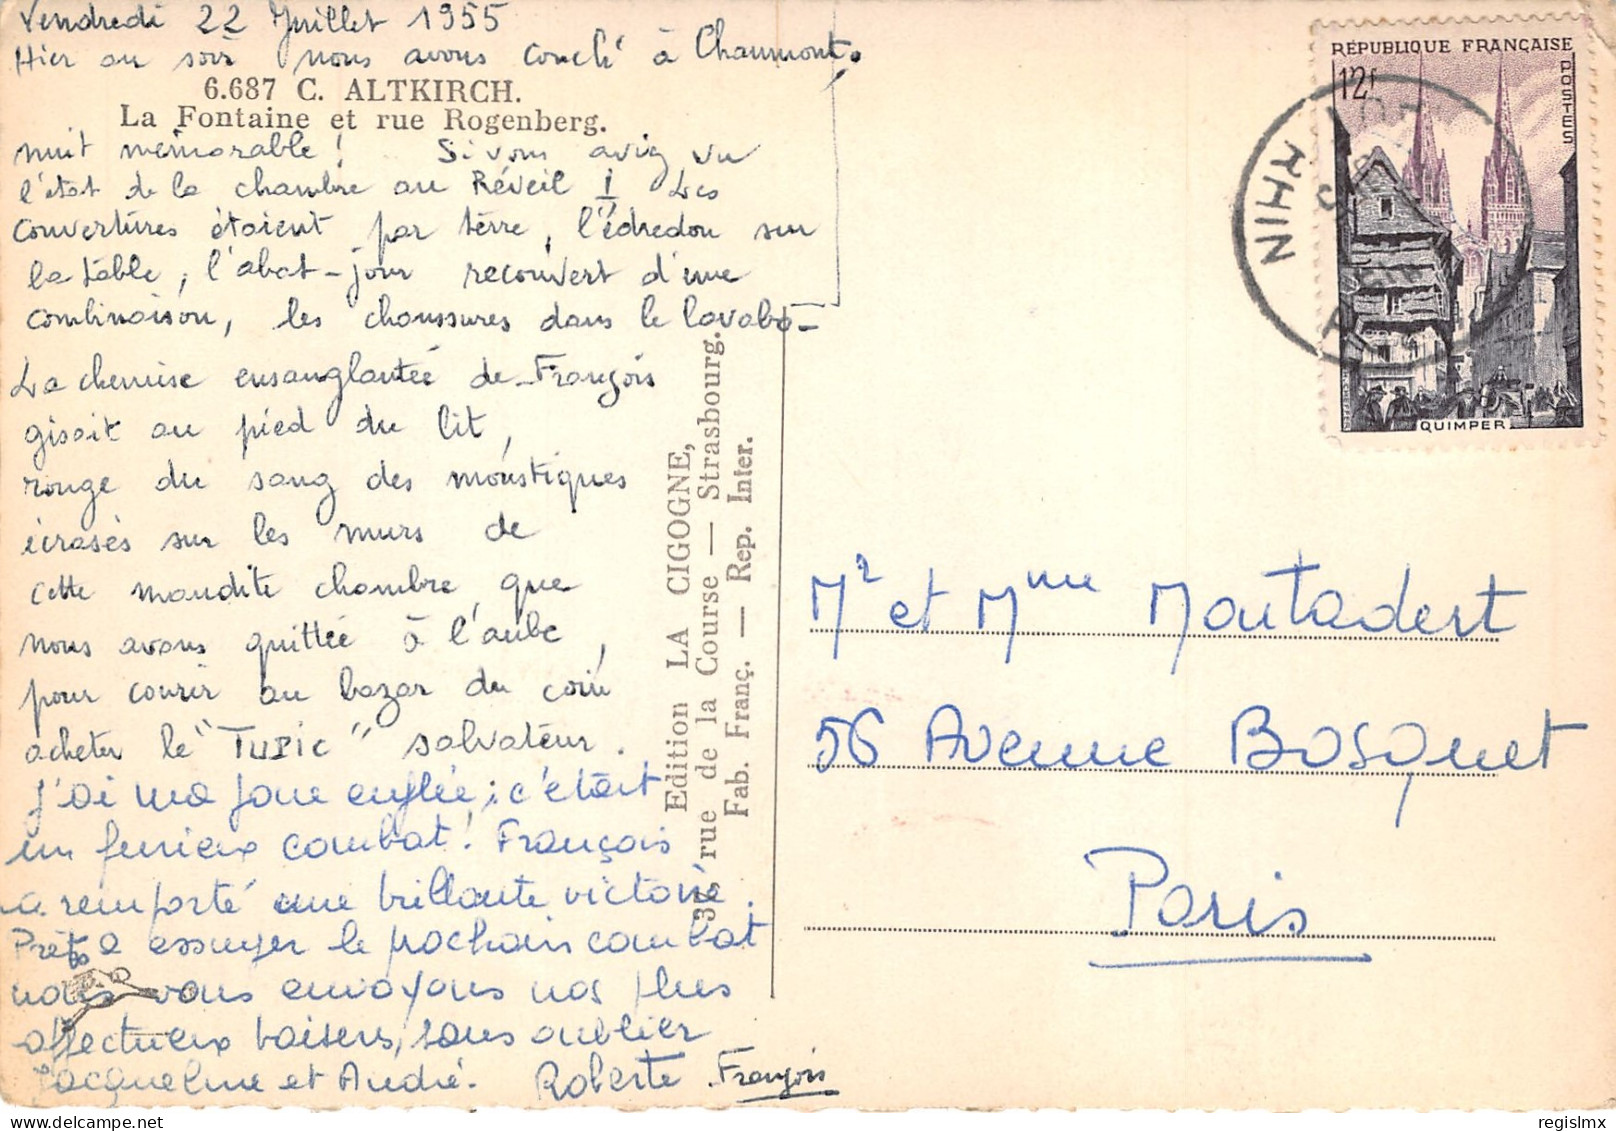 Vendredi 22 Juillet 1955
Hier au soir nous avons couché à Chaumont.
6.687 C. ALTKIRCH.
La Fontaine et rue Rogenberg.
nuit mémorable ! Si vous aviez vu
l'état de la chambre au Réveil ! Les
couvertures étaient par terre, l'édredon sur
la table, l'abat-jour recouvert d'une
combinaison, les chaussures dans le lavabo -
La chemise ensanglantée de François
gisait au pied du lit,
rouge du sang des moustiques
écrasés sur les murs de
cette maudite chambre, que
nous avons quittée à l'aube,
pour courir au bazar du coin
acheter le "TUPIC" salvateur.
J'ai ma joue enflée ; c'était
un furieux combat ! François
a remporté une brillante victoire.
Prêts à essuyer le prochain combat
nous vous envoyons nos plus
affectueux baisers, sans oublier
Jacqueline et André. Roberte François
Edition LA CIGOGNE,
rue de la Course — Strasbourg.
Fab. Franç. — Rep. Inter.
RÉPUBLIQUE FRANÇAISE
12f
POSTES
QUIMPER
RHIN
Mr et Mme Moutadert
56 Avenue Bosquet
Paris
regislmx